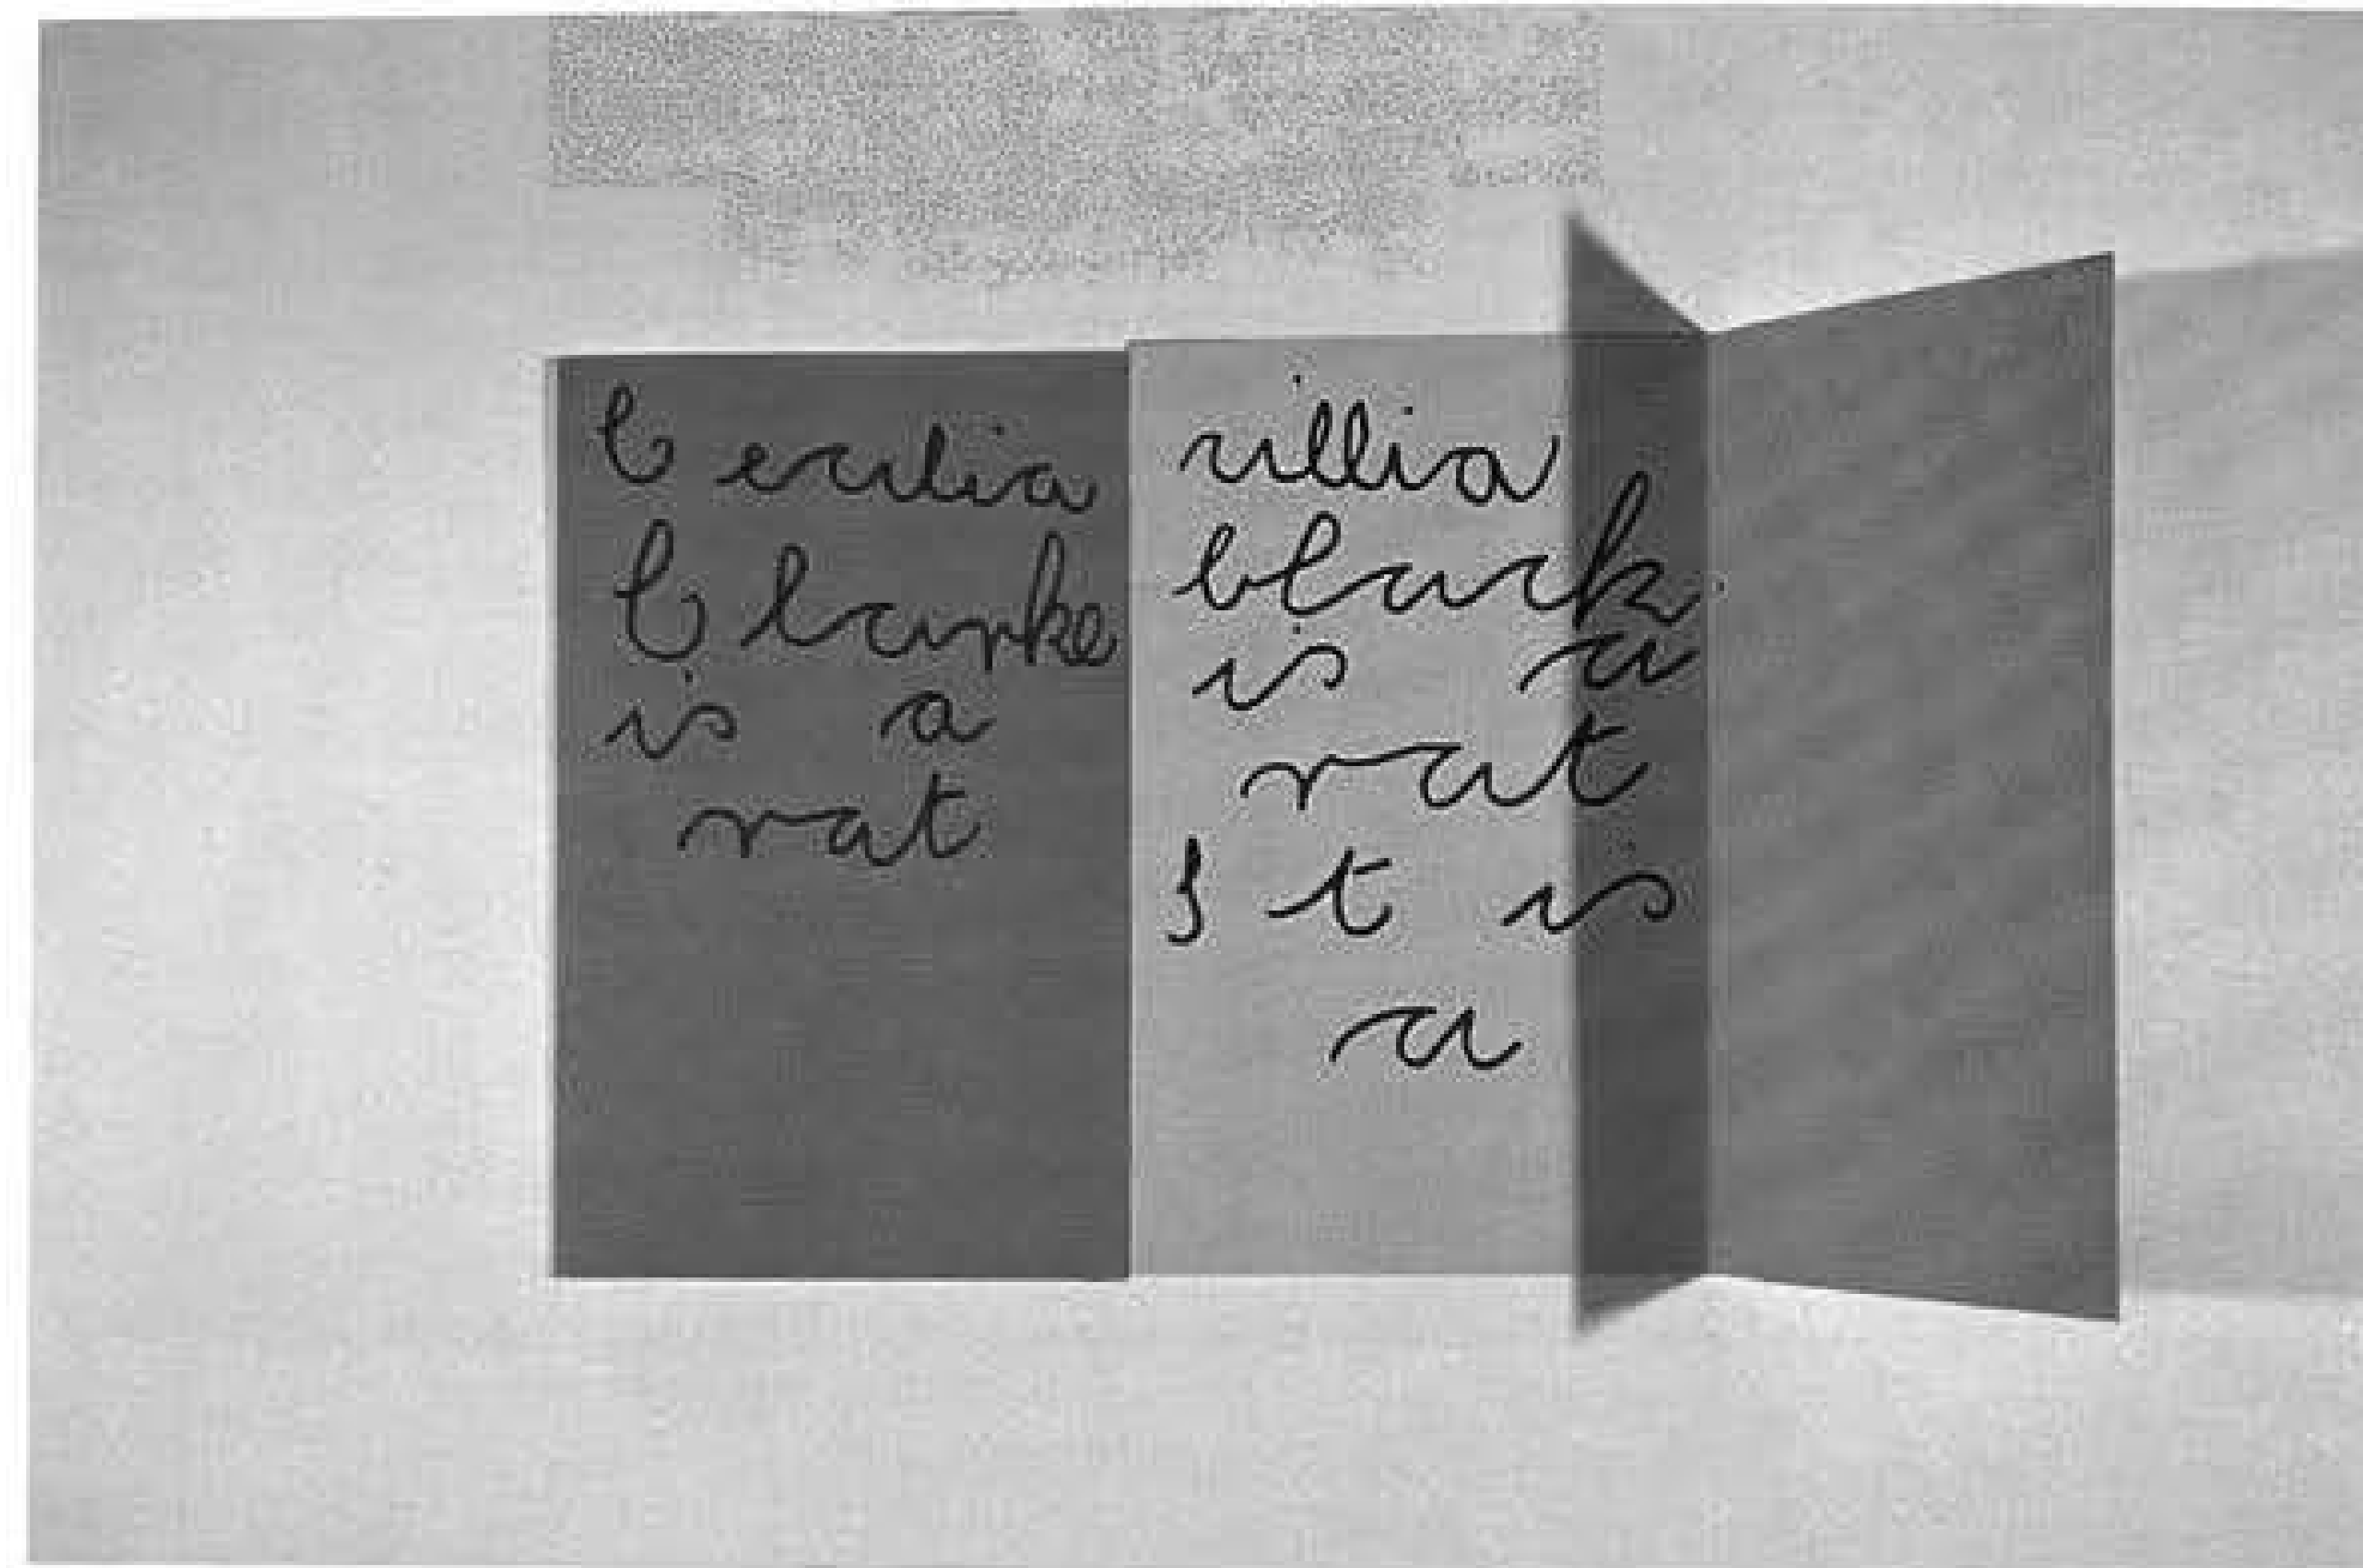 Cecilia
Clarke
is a
rat
cillia
black
is a
rat
It is
a